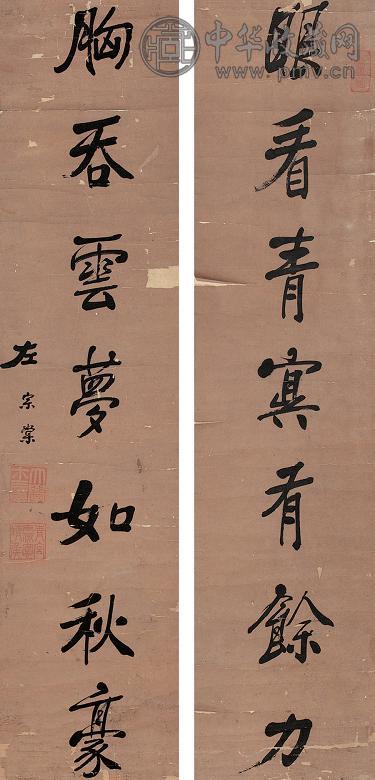 眼看青冥有餘力
胸吞雲夢如秋豪
左宗棠
中华收藏网
www.pmv.cn